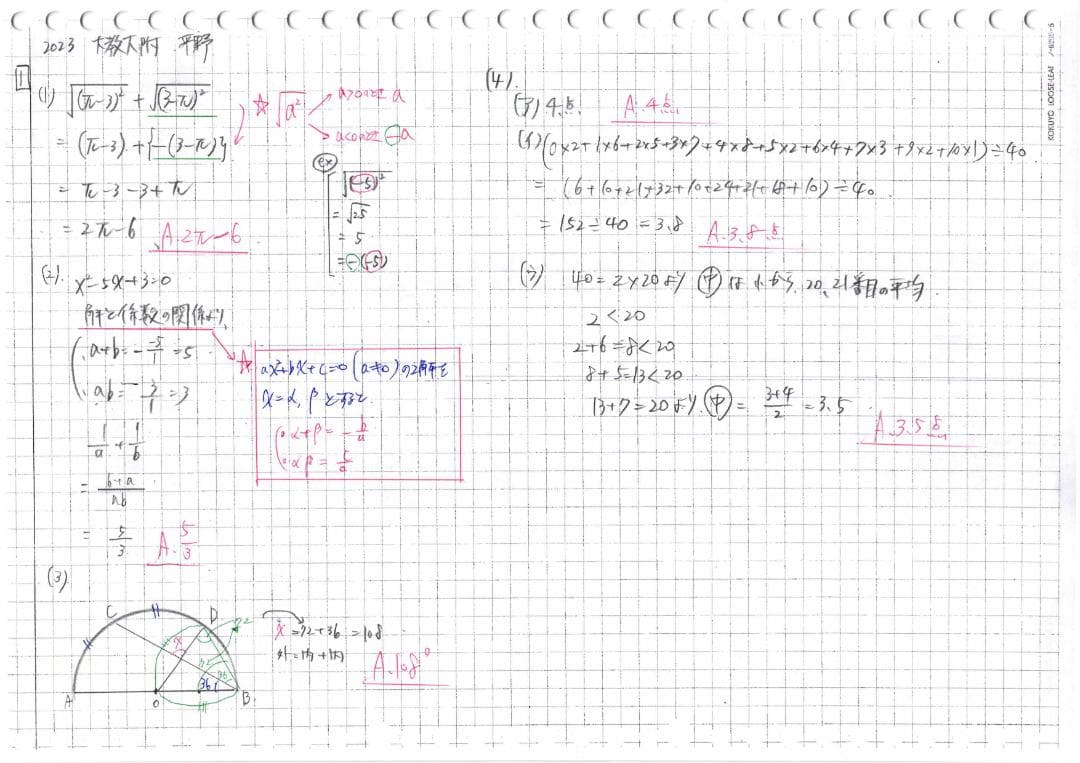 2023 大教大附 平野
1
(1) √(π-3)² + √(3-π)²
= (π-3) + {-(3-π)}
= π-3-3+π
= 2π-6 A. 2π-6
☆ √a² a>0のとき a
a<0のとき -a
ex
√(-5)²
= √25
= 5
= -(-5)
(2). x²-5x+3=0
解と係数の関係より、
a+b = - -5/1 = 5
ab = 3/1 = 3
1/a + 1/b
= b+a/ab
= 5/3 A. 5/3
☆ ax²+bx+c=0 (a≠0) の2解を
x=α, β とすると
α+β = - b/a
αβ = c/a
(3)
C D 72
x
72 36
36
A O B
x = 72+36 = 108
外=内+内
A. 108°
(4).
(ア) 4点 A. 4点
(イ) (0×2+1×6+2×5+3×7+4×8+5×2+6×4+7×3+9×2+10×1)÷40
= (6+10+21+32+10+24+21+18+10)÷40
= 152÷40 = 3.8 A. 3.8点
(ウ) 40=2×20より 中は小から 20, 21番目の平均
2<20
2+6=8<20
8+5=13<20
13+7=20より 中 = 3+4/2 = 3.5
A. 3.5点
KOKUYO LOOSE-LEAF